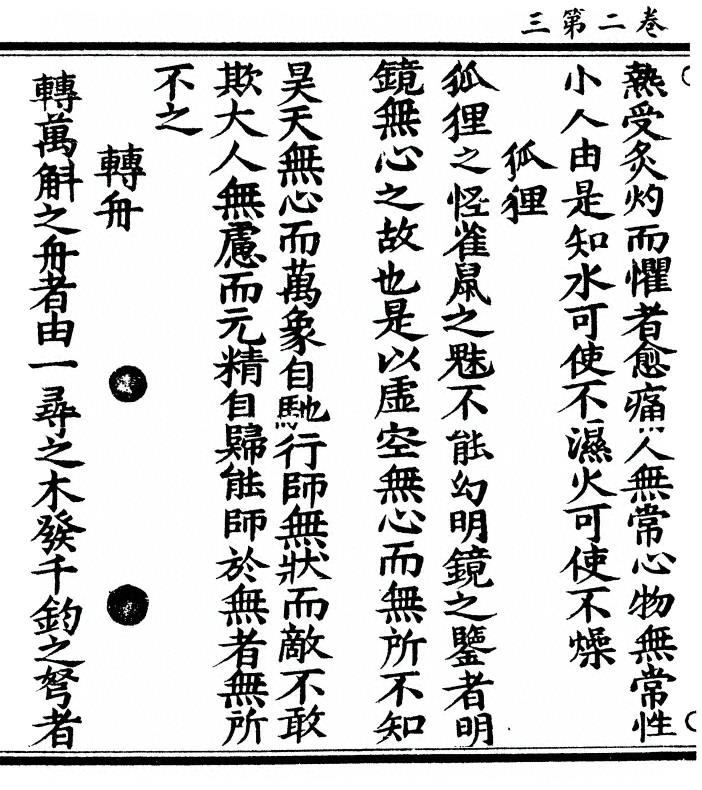 三第二卷
熱受炙灼而懼者愈痛人無常心物無常性
小人由是知水可使不濕火可使不燥
狐狸
狐狸之怪雀鼠之魅不能幻明鏡之鑒者明
鏡無心之故也是以虛空無心而無所不知
昊天無心而萬象自馳行師無狀而敵不敢
欺大人無慮而元精自歸能師於無者無所
不之
轉舟
轉萬斛之舟者由一尋之木發千鈞之弩者